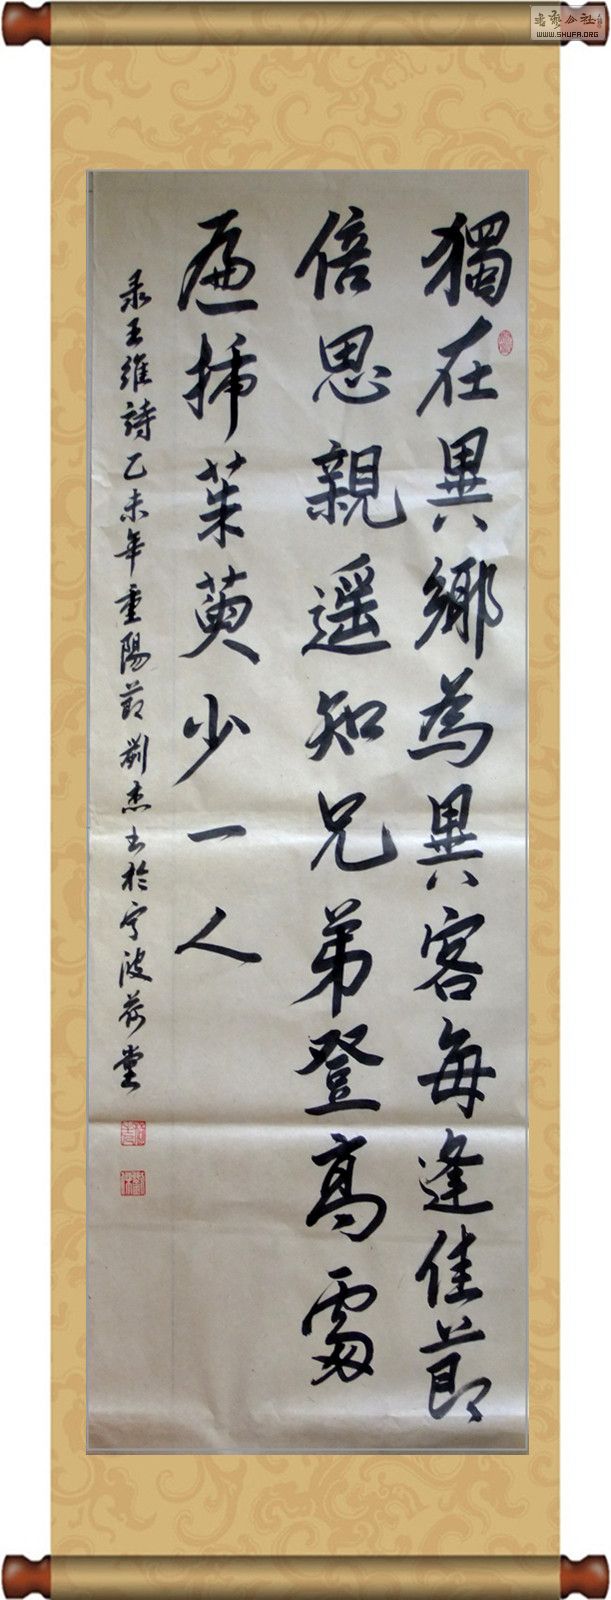 獨在異鄉為異客每逢佳節
倍思親遥知兄弟登高處
遍插茱萸少一人
录王維詩乙未年重陽節劉杰书於宁波荷堂
書藝公社
WWW.SHUFA.ORG